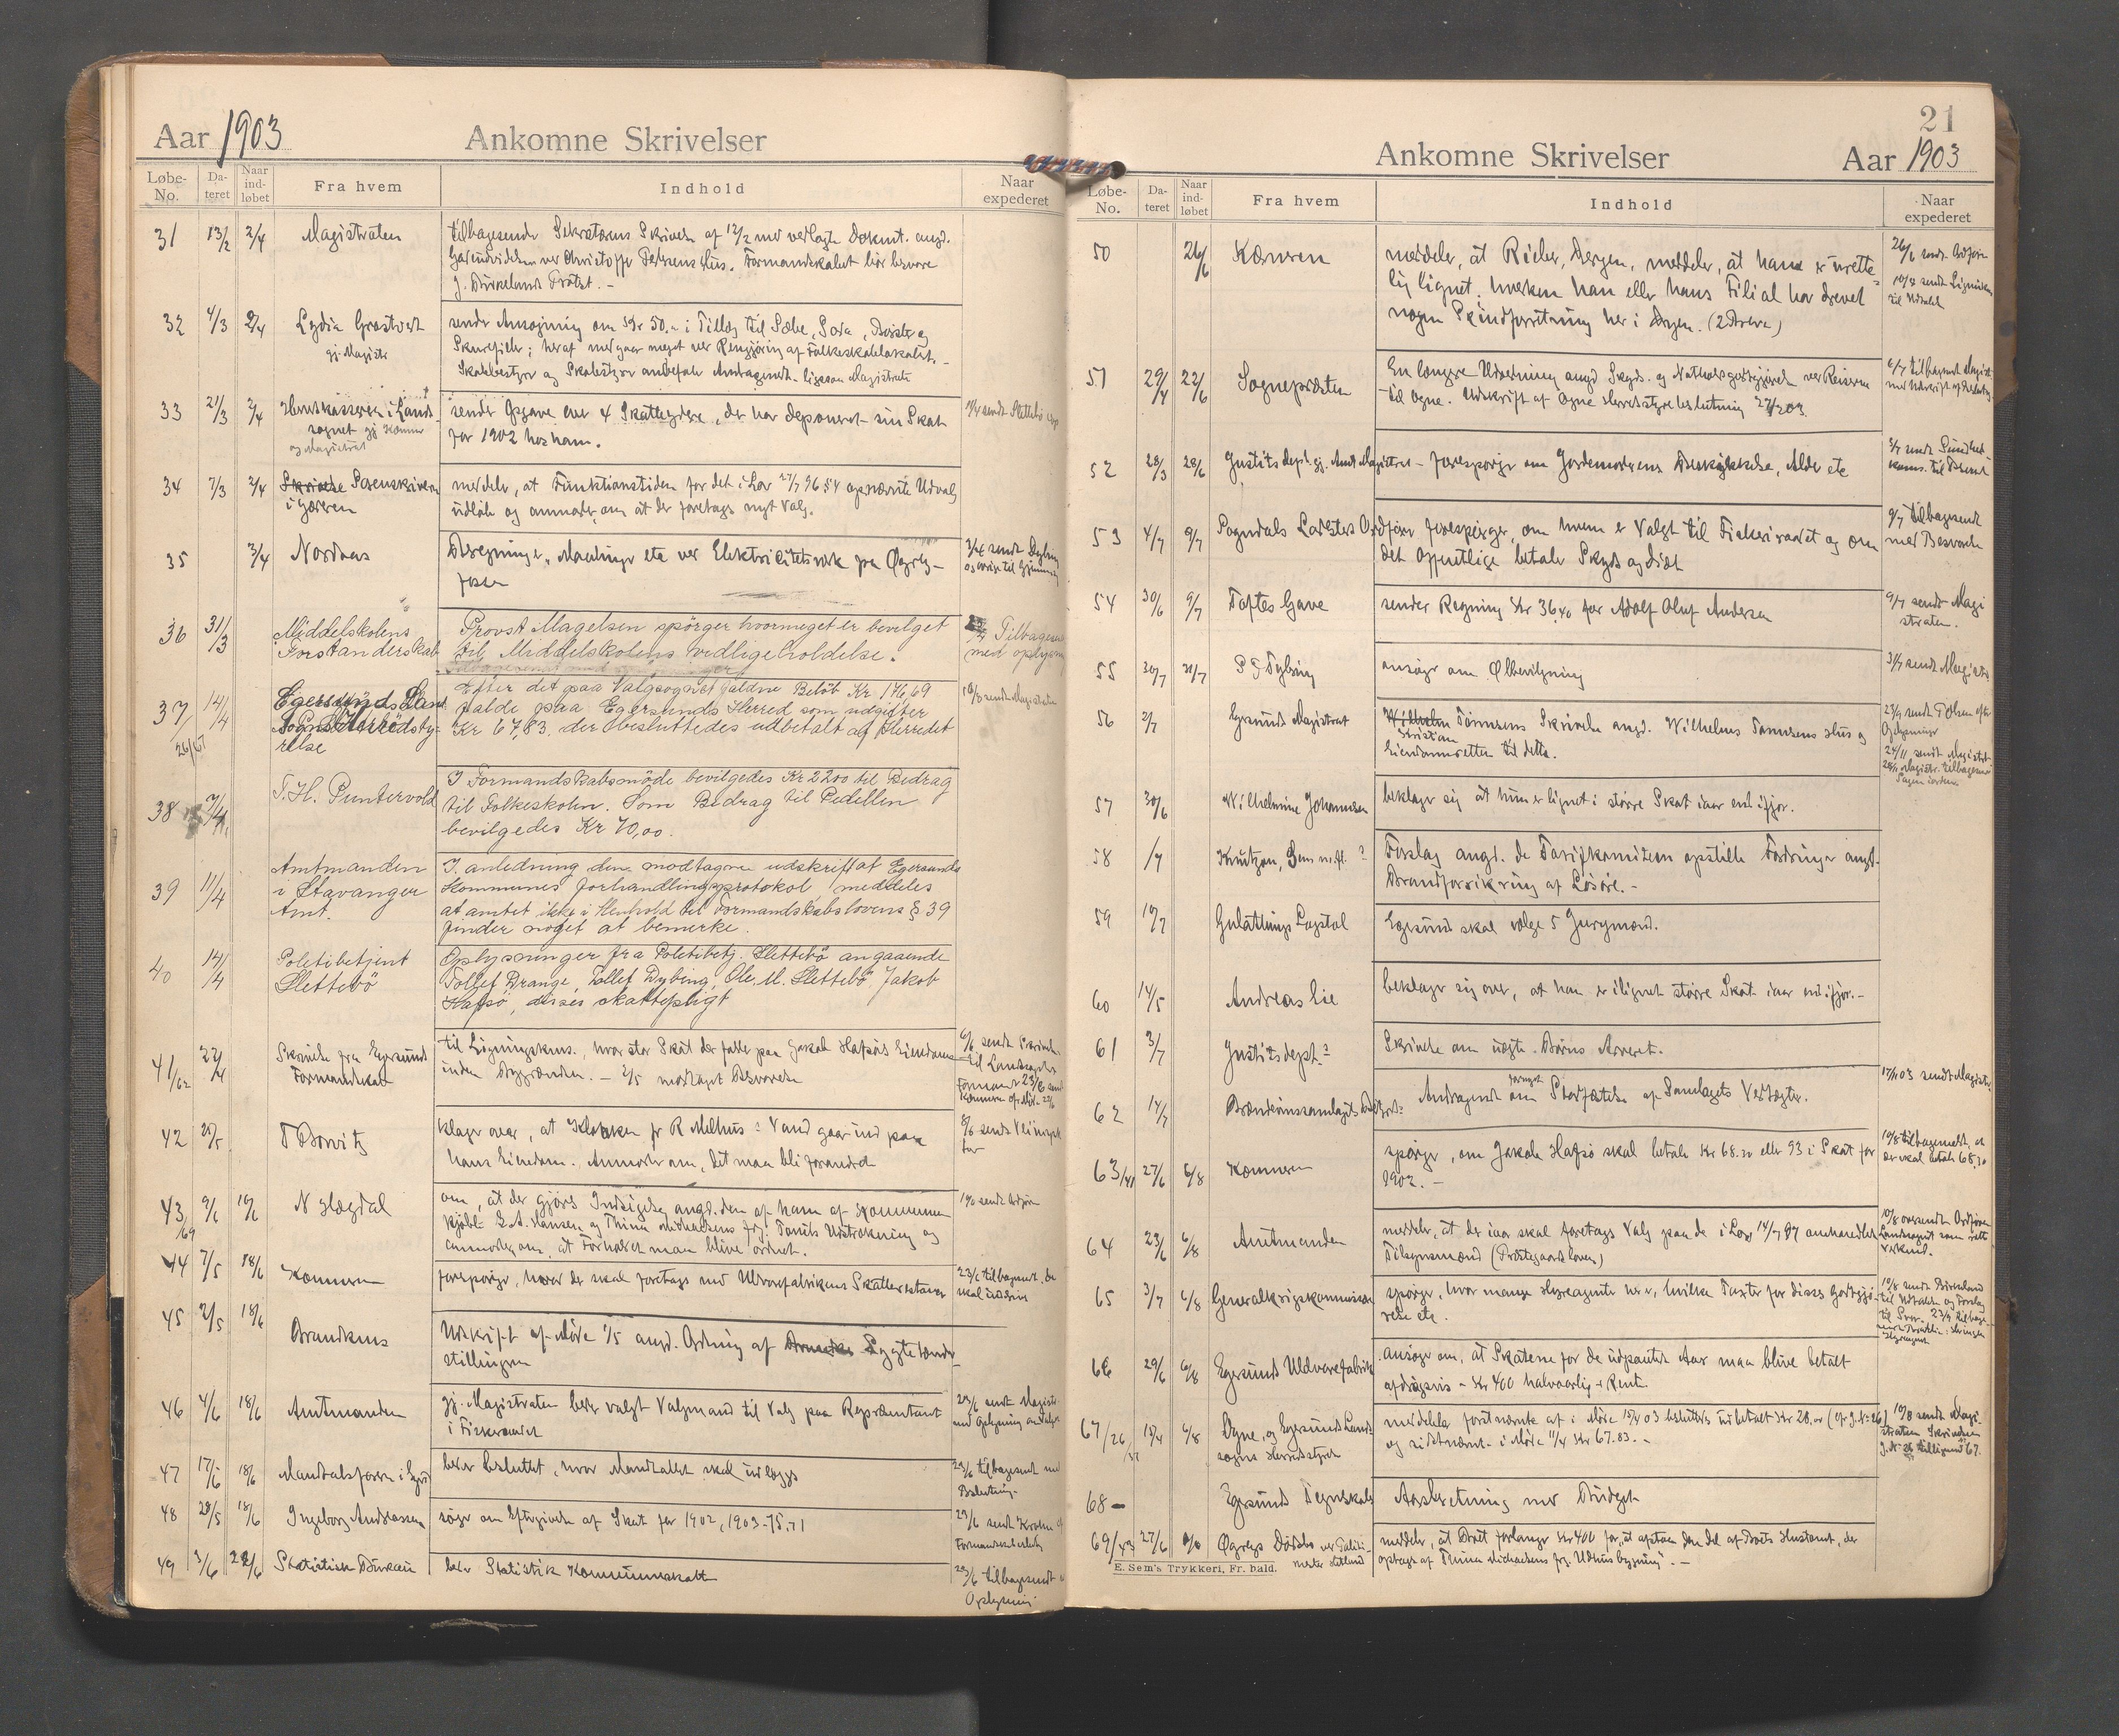 Aar 1903
Ankomne Skrivelser
Løbe-No.
Da-teret
Naar ind-løbet
Fra hvem
Indhold
Naar expederet
31 13/2 2/4 Magistraten
tilbagesender Sekretærens Skrivelse af 12/2 med vedlagte Dokmt. angd.
ved Christoffer Pedersens Hus. Formandskabet bør besvare
J. Birkelands Protest. -
32 4/3 2/4 Lydia
gj. Magistr
sender Ansøgning om Kr 50.- i Tillæg til Sæbe, Soda, Børster og
Skurefiller; heraf medgaar meget ved Rengjøring af Folkeskolelokalet. -
Skolebestyrer og Skolestyre anbefale Andragendet - ligesaa Magistraten
33 21/3 2/4 Herredskasserer i Land-
sognet gj Kæmner
og Magistrat
sender Opgave over 4 Skatteydere, der har deponeret sin Skat
for 1902 hos ham.
34 7/3 2/4 Skrivelse Sorenskriveren
i Jæderen
meddeler, at Funktionstiden for det i Lov 27/7 96 § 4 opnævnte Udvalg
udløb og anmoder om at der foretages nyt Valg.
35 3/4 Nordaas
Beregninger, Maalinger etc ved Elektricitetsværk paa Øgreys-
fossen
36 31/3 Middelskolens
Forstanderskab
Provst Magelsen spörger hvormeget er bevilget
til Middelskolens vedligeholdelse.
Tilbagesendt
med oplysning
37 14/4 Egersunds Land
Sogns Herredsty-
relse
26/67
Efter det paa Valgsognet faldne Belöb Kr 176,69
falde paa Egersunds Herred som udgifter
Kr 67,83. der besluttedes udbetalt af Herredet
sendt Magistraten
38 7/4 T. H. Puntervold
I Formandskabsmöde bevilgedes Kr 2200 til Bidrag
til Folkeskolen. Som Bidrag til Pedellen
bevilgedes Kr 70,00.
39 11/4 Amtmanden
i Stavanger
Amt.
I anledning den modtagne udskrift af Egersunds
Kommunes forhandlingsprotokol meddeles
at amtet ikke i Henhold til Formandskabslovens § 39
finder noget at bemerke.
40 14/4 Politibetjent
Slettebö
Oplysninger fra Politibetj. Slettebö angaaende
Tollef Drange, Tollef Dybing, Ole M. Slettebö, Jakob
Hafsö, disses skattepligt
41/62 22/4 Skrivelse fra Egersunds
Formandskab
til Ligningskms., hvor stor Skat der falder paa Jakob Hafsös Eiendomme
inden Bygrænden. - 2/5 modtaget Besvarelse
6/6 sendt Skrivelse
til Landsognets
Formand 23/6 sendt
Kæmneren
42 29/5
klager over, at Kloakken fr R Melhus' Vand gaar ind paa
hans Eiendom. Anmoder om, det maa bli forandret
43/69 9/6 10/6 N Hægdal
om, at der gjøres Indsigelse angd. den af ham af Kommunen
kjøbt E. A. Hansen og Thina Michaelsens frg. Tomts Udstrækning og
anmoder om, at Forholdet maa blive ordnet.
sendt Ordfører
44 7/5 18/6 Kæmneren
forespørger, hvad der skal foretages med Uldvarefabrikens Skatterestancer
23/6 tilbagesendt, de
skal inddrives
45 2/5 18/6 Brandkms
Udskrift af Møde 1/5 angd. Ordning af Lygtetænder-
stillingen
46 4/6 18/6 Amtmanden
gj. Magistraten beder valgt Valgmand til Valg paa Repræsentant
i Fiskeraadet
23/6 sendt Magistr
med Oplysning om Valget
47 17/6 18/6 Mandtalsfører i
beder besluttet, hvor Mandtallet skal udlægges
23/6 tilbagesendt med
Beslutning
48 28/5 18/6 Ingeborg Andreassen
søger om Eftergivelse af Skat for 1902, 1903 - 15.71
23/6 sendt
49 3/6 22/6 Statistisk Bureau
beder Statistik Kommuneskatter
23/6 tilbagesendt
Oplysning
21
Ankomne Skrivelser
Aar 1903
Løbe-No.
Da-teret
Naar ind-løbet
Fra hvem
Indhold
Naar expederet
50 26/6 Kæmneren
meddeler, at Rieber, Bergen, meddeler, at han er urette-
lig lignet, hverken han eller hans Filial har drevet
nogen Skindforretning her i Byen. (2 Breve)
26/6 sendt Ordfører
sendt Ligningskms
til Udtalelse
51 29/4 22/6 Sognepræsten
En længere Udredning angd Skyds- og Natholdsgodtgjørelse ved Reiserne
til Ogne. Udskrift af Ogne Herredsstyres beslutning 27/2 03
6/7 tilbagesendt Magist
med Udskrift af Beslutning
52 28/3 28/6 Justitsdept. gj. Amt Magistrat
Forespørger om Jordemødrenes Beskikkelse, Alder etc
3/7 sendt Sundheds-
koms. til Besvarelse
53 4/7 9/7 Sogndals Ladesteds Ordfører
Forespørger, om hvem er Valgt til Fiskeriraadet og om
det Offentlige betaler Skyds og Diæt
9/7 tilbagesendt
med Besvarelse
54 30/6 9/7 Toftes Gave
sender Regning Kr 36,40 for Adolf Oluf Andersen
9/7 sendt Magi
straten.
55 30/7 31/7 P F Dybing
ansøger om Ølbevilgning
31/7 sendt Magistr
56 2/7 Egersunds Magistrat
Wilhelm Tønnesens Skrivelse angd. Wilhelms Tønnesens Hus og
Kristian
Eiendomsretten til dette.
23/9 sendt
Oplysninger
24/11 sendt Magistr
57 30/6 Wilhelmine Johannesen
beklager sig at hun er lignet i større Skat iaar end ifjor.
58 /7 Knutzon,
Forslag angd. de Tarifkomiteen opstillede Fordringer angd.
Brandforsikring af Løsøre. -
59 10/7 Gulatings Lagstol
Egersund skal vælge 5 Jurymænd.
60 14/5 Andreas Lie
beklager sig over, at han er ilignet større Skat iaar end ifjor. -
61 3/7 Justitsdept.
Skrivelse om uægte Børns Arveret.
62 14/7 Brændevinssamlagets
Andragende om fornyet Stadfæstelse af Samlagets Vedtægter.
17/11 03 sendt Magistr.
63/41 27/6 6/8 Kæmneren
spørger, om Jakob Hafsø skal betale Kr 68.20 eller 93 i Skat for
1902. -
10/8 tilbagemeldt, at
der skal betale 68,20
64 23/6 6/8 Amtmanden
meddeler, at der iaar skal foretages Valg paa de i Lov 14/7 97 omhandlede
Tilsynsmænd (Prestegaardsloven)
10/8 oversendt Ordføreren
Landsognet som rette
vedkmd.
65 3/7 6/8 Generalkrigskommissær
spørger, hvor mange Hyreagenter her er, hvilke Taxter for disses Godtgjø-
relse etc.
10/8 sendt Birkeland
til Udtalelse og Forslag
66 29/6 6/8 Egersunds Uldvarefabrik
ansøger om, at Skatterne for de udpantede Aar maa blive betalt
afdragsvis - Kr 400 halvaarlig + Renter
67/26/37 15/4 6/8 Ogne, og Egersunds Land-
sogns Herredsstyrer
meddeler førstnævnte at i Møde 15/4 03 besluttedes udbetalt Kr 28.00 (cfr J. No 26)
og sidstnævnte i Møde 11/4 Kr 67.83. -
10/8 sendt Magi-
straten Skrivelsen
68 - Egersunds Tegneskole
Aarsberetning med Budget
69/43 27/6
meddeler, at Brevet forlanger Kr 400 for, at afstaa den Del af Boets Hustomt, der
optages af Thina Michaelsens frg. Udhusbygning". -
E. Sem's Trykkeri, Fr. hald.